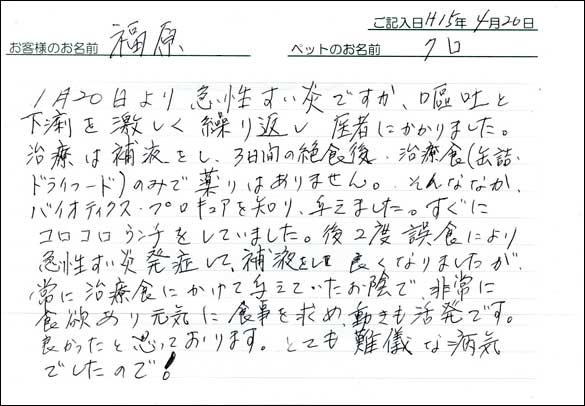 ご記入日 H15年 4月20日
お客様のお名前 福原 ペットのお名前 クロ
1月20日より 急性すい炎ですが、嘔吐と
下痢を激しく繰り返し 医者にかかりました。
治療は補液をし、3日間の絶食後、治療食(缶詰・
ドライフード)のみで薬りはありません。そんななか、
バイオティクス・プロキュアを知り、与えました。すぐに
コロコロうンチをしていました。後2度誤食により
急性すい炎発症して、補液をして 良くなりましたが、
常に治療食にかけて与えていたお陰で 非常に
食欲あり元気に食事を求め、動きも活発です。
良かったと思っております。とても難儀な病気
でしたので!